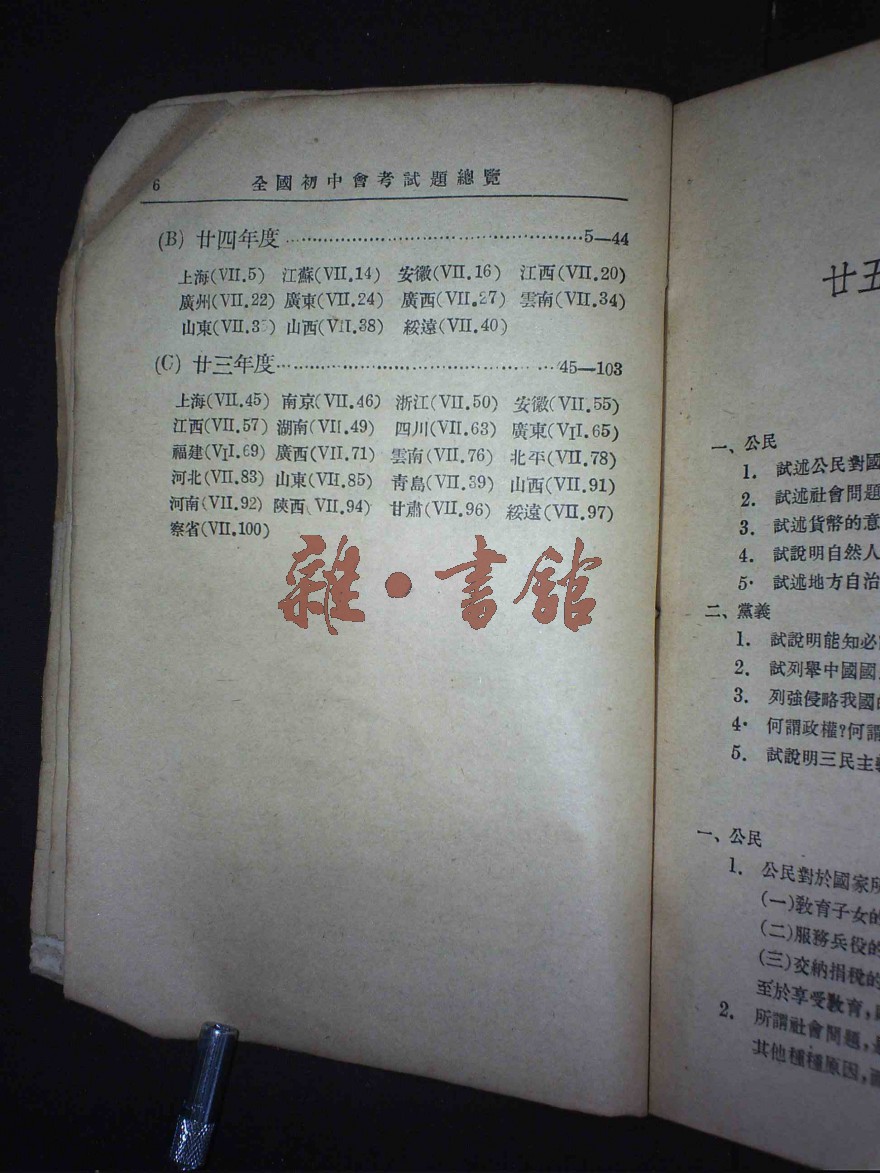 6 全國初中會考試題總覽
(B) 廿四年度……………………………5—44
上海(VII.5) 江蘇(VII.14) 安徽(VII.16) 江西(VII.20)
廣州(VII.22) 廣東(VII.24) 廣西(VII.27) 雲南(VII.34)
山東(VII.3 山西(VII.38) 綏遠(VII.40)
(C) 廿三年度……………………………45—103
上海(VII.45) 南京(VII.46) 浙江(VII.50) 安徽(VII.55)
江西(VII.57) 湖南(VII.49) 四川(VII.63) 廣東(VII.65)
福建(VII.69) 廣西(VII.71) 雲南(VII.76) 北平(VII.78)
河北(VII.83) 山東(VII.85) 青島(VII.39) 山西(VII.91)
河南(VII.92) 陝西(VII.94) 甘肅(VII.96) 綏遠(VII.97)
察省(VII.100)
雜·書館
廿五
一、公民
1. 試述公民對國
2. 試述社會問題
3. 試述貨幣的意
4. 試說明自然人
5. 試述地方自治
二、黨義
1. 試說明能知必
2. 試列舉中國國
3. 列強侵略我國
4. 何謂政權?何謂
5. 試說明三民主
一、公民
1. 公民對於國家所
(一)教育子女的
(二)服務兵役的
(三)交納捐稅的
至於享受教育,
2. 所謂社會問題,
其他種種原因,